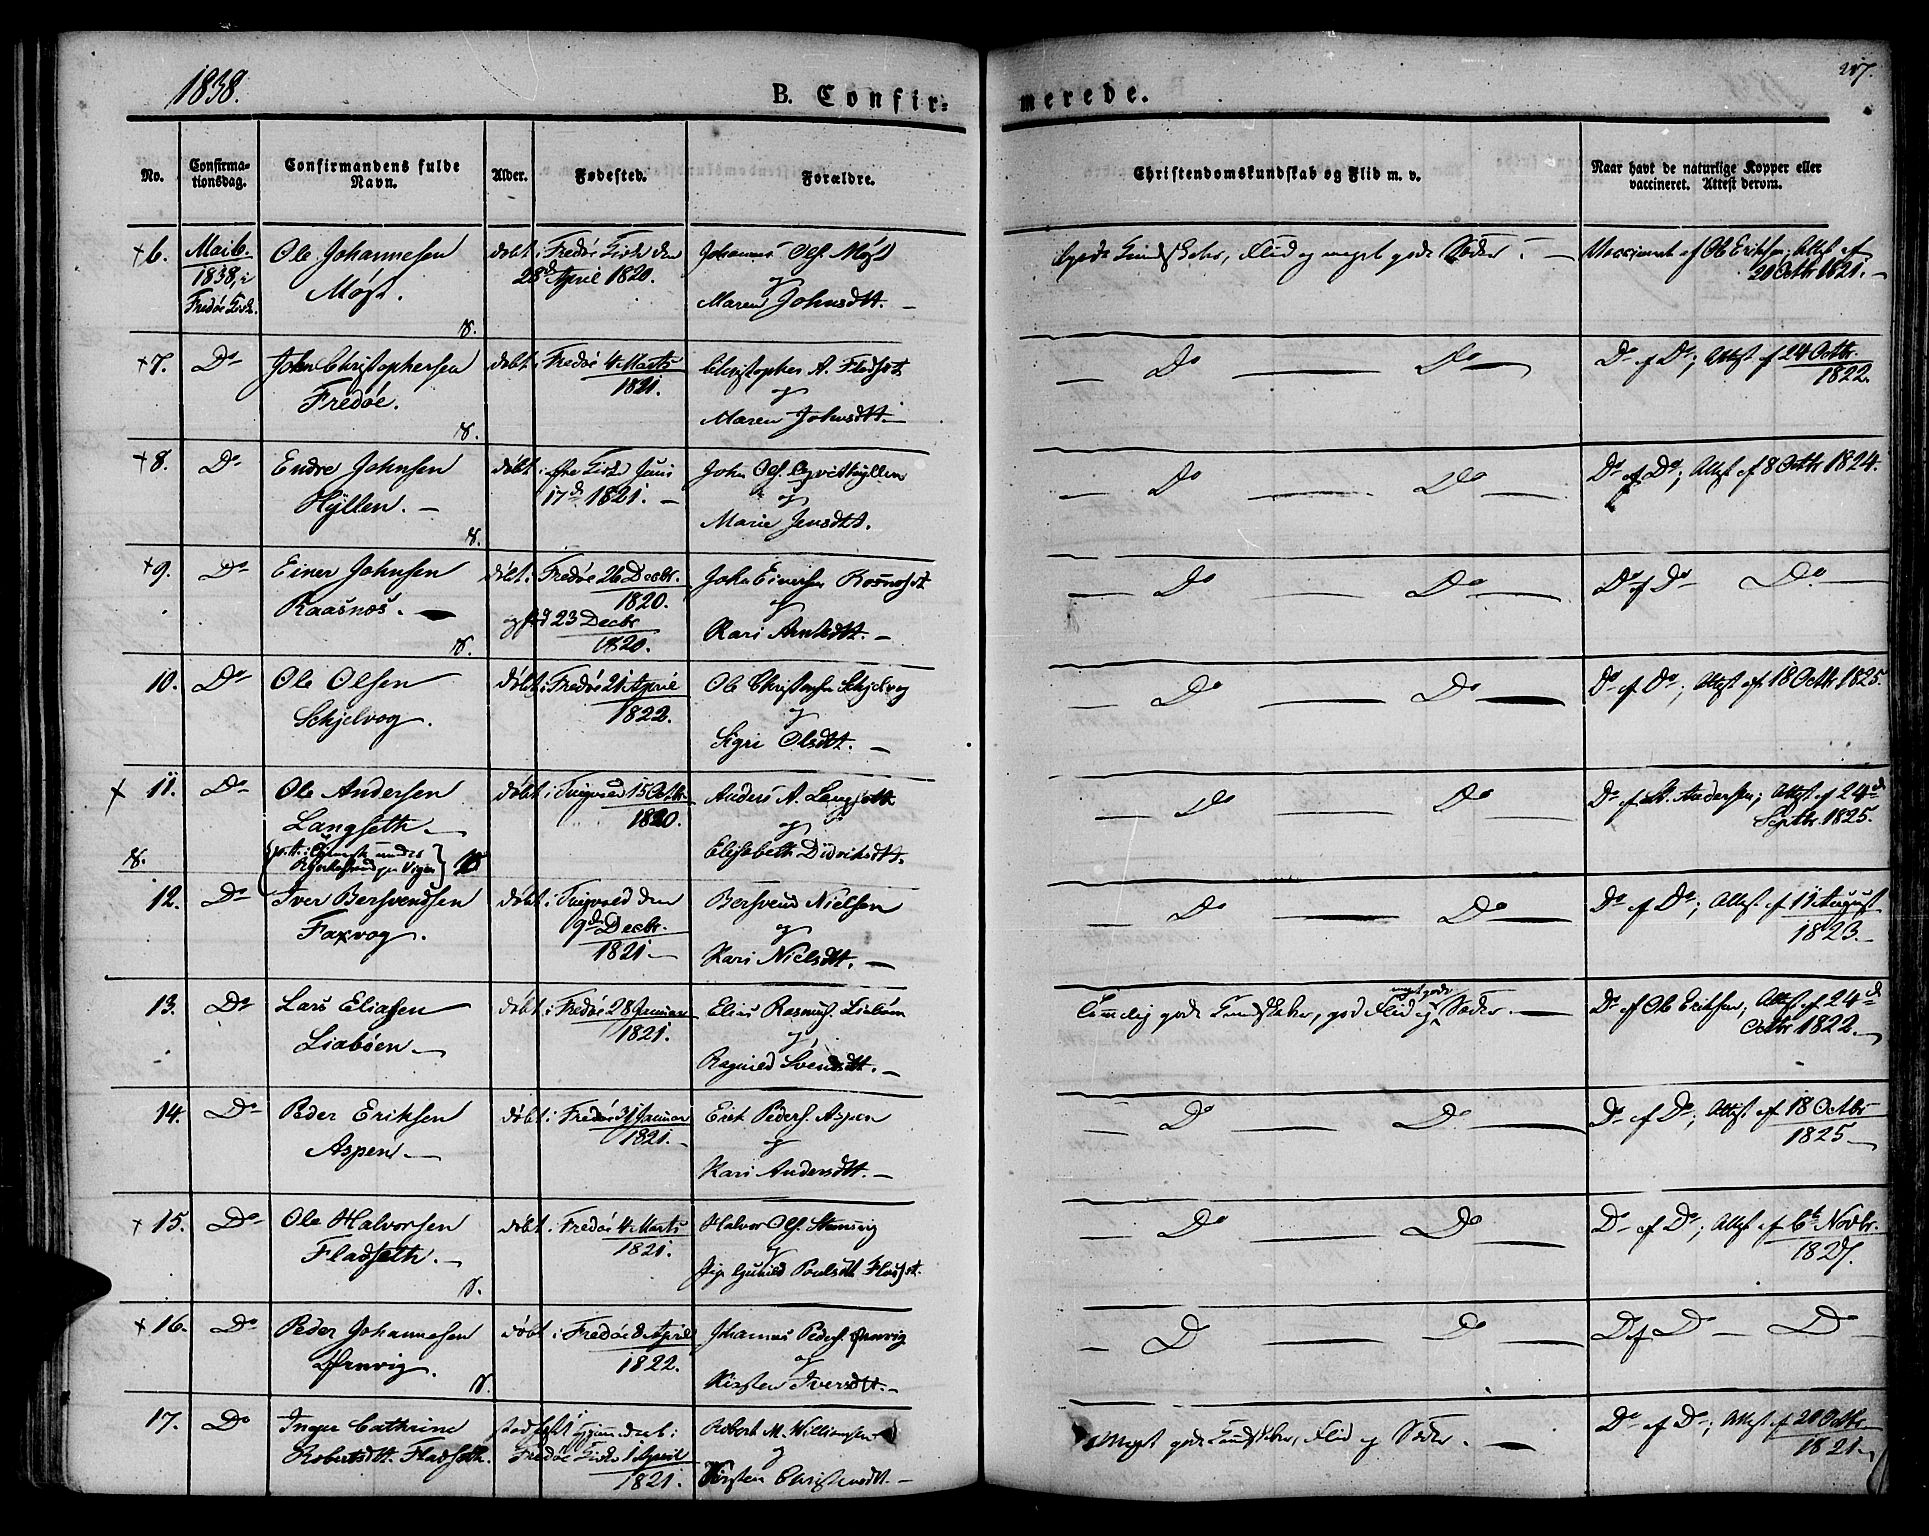 1838.
B. Confir-
merede.
207.
No.
Confirma-
tionsdag.
Confirmandens fulde
Navn.
Alder.
Fødested.
Forældre.
Christendomskundskab og Flid m. v.
Naar havt de naturlige Kopper eller
vaccineret. Attest derom.
+6.
Mai 6.
1838, i
Fredøe Kirk.
Ole Johannesen
Møst.
døbt i Fredøe Kirke den
28d April 1820.
Johannes Ols. Møst
og
Maren Johnsdtt. -
gode Kundskaber, Flid og meget gode Sæder. -
Vaccineret af Ole Eriksen, Attest af
20 Octbr 1821. -
+7.
Do
John Christophersen
Fredøe.
døbt i Fredøe 4 Marts
1821.
Christopher A. Fladset
og
Maren Johnsdtt. -
Do Do
Do af Do; Attest af 24 Octbr.
1822.
+8.
Do
Endre Johnsen
Hyllen. -
døbt i Kirke Juni
17d 1821. -
John Ols.
og
Marie Jensdtt.
Do Do
Do af Do; Attest af 8 Octbr 1824.
+9.
Do
Einer Johnsen
Raasnos. -
døbt i Fredøe 26 Decbr.
1820.
og fød 23 Decbr
1820.
John Einersen
og
Kari Arntsdtt. -
Do Do
Do af Do Do
10.
Do
Ole Olsen
Schjelvog.
døbt i Fredøe 21 April
1822.
Ole Christensen Schjelvog
og
Sigri Olsdtt. -
Do Do
Do af Do; Attest af 18 Octbr 1825.
+ 11.
Do
Ole Andersen
Langseth. -
døbt i Tingvold 15 Octbr.
1820.
Anders A. Langseth
og
Elisabeth Didriksdtt.
Do Do
Do af Andersen; Attest af 24d
Septbr. 1825.
12.
Do
Iver Bersvendsen
Faxvog.
døbt i Tingvold den
9d Decbr.
1821. -
Bersvend Nielsen
og
Kari Nielsdtt. -
Do Do
Do af Do; Attest af 11 August
1823. -
13.
Do
Lars Eliassen
Liabøen. -
døbt i Fredøe 28 Januar
1821.
Elias Rasmus. Liabøen
og
Ragnild Svendsdtt. -
Temmelig gode Kundskaber, god Flid og meget gode Sæder. -
Do af Ole Eriksen, Attest af 24d
Octbr 1822. -
14.
Do
Peder Eriksen
Aspen. -
døbt i Fredøe 31 Januar
1821. -
Erik Peders. Aspen
og
Kari Andersdtt. -
Do Do
Do af Do; Attest af 18 Octbr
1825. -
+ 15.
Do
Ole Halvorsen
Fladseth. -
døbt i Fredøe 4 Marts
1821.
Halvor Ols. Stensvig
og
Pige Gunild Poulsdtt Fladset.
Do Do
Do af Do; Attest af 6te Novbr.
1827.
+ 16.
Do
Peder Johannesen
Ørnvig.
døbt i Fredøe 8 April
1822.
Johannes Peders. Ørnvig
og
Kirsten Iversdtt. -
Do Do
D af D - Do
17.
Do
Inger Cathrine
Robertsdtt. Fladseth.
Hjemmedaab i
Fredøe Kirke 1 April
1821.
Robert M. Williamsen
og
Kirsten Christensdtt. -
Meget gode Kundskaber, Flid og Sæder. -
Do af Do; Attest af 20 Octbr
1821. -